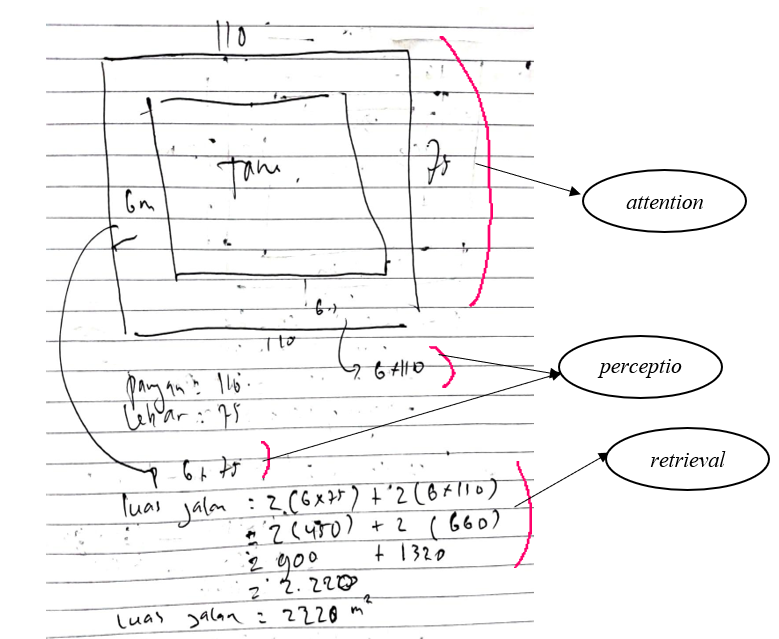 110
Tam.
75
attention
6m
6m
110
6x110
perceptio
panjan = 110
lebar = 75
6x75
retrieval
luas jalan = 2.(6x75) + 2(6x110)
= 2(450) + 2 (660)
= 900 + 1320
= 2.220
luas jalan = 2220 m²